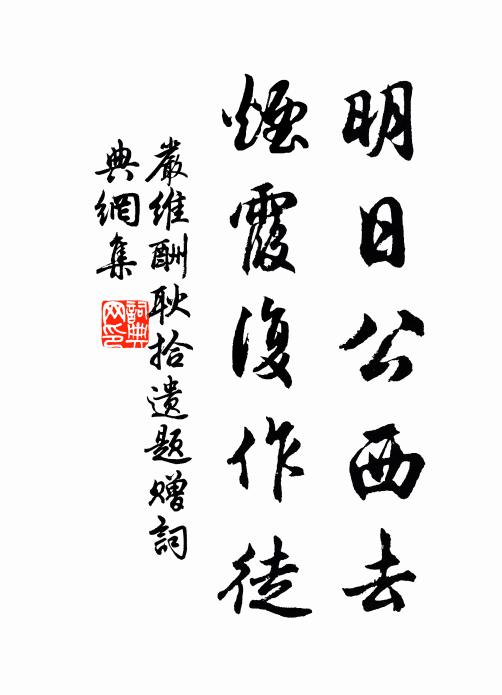 明日公西去
煙霞復作徒
嚴維酬耿拾遺題贈詞
典網集
詞典
网印